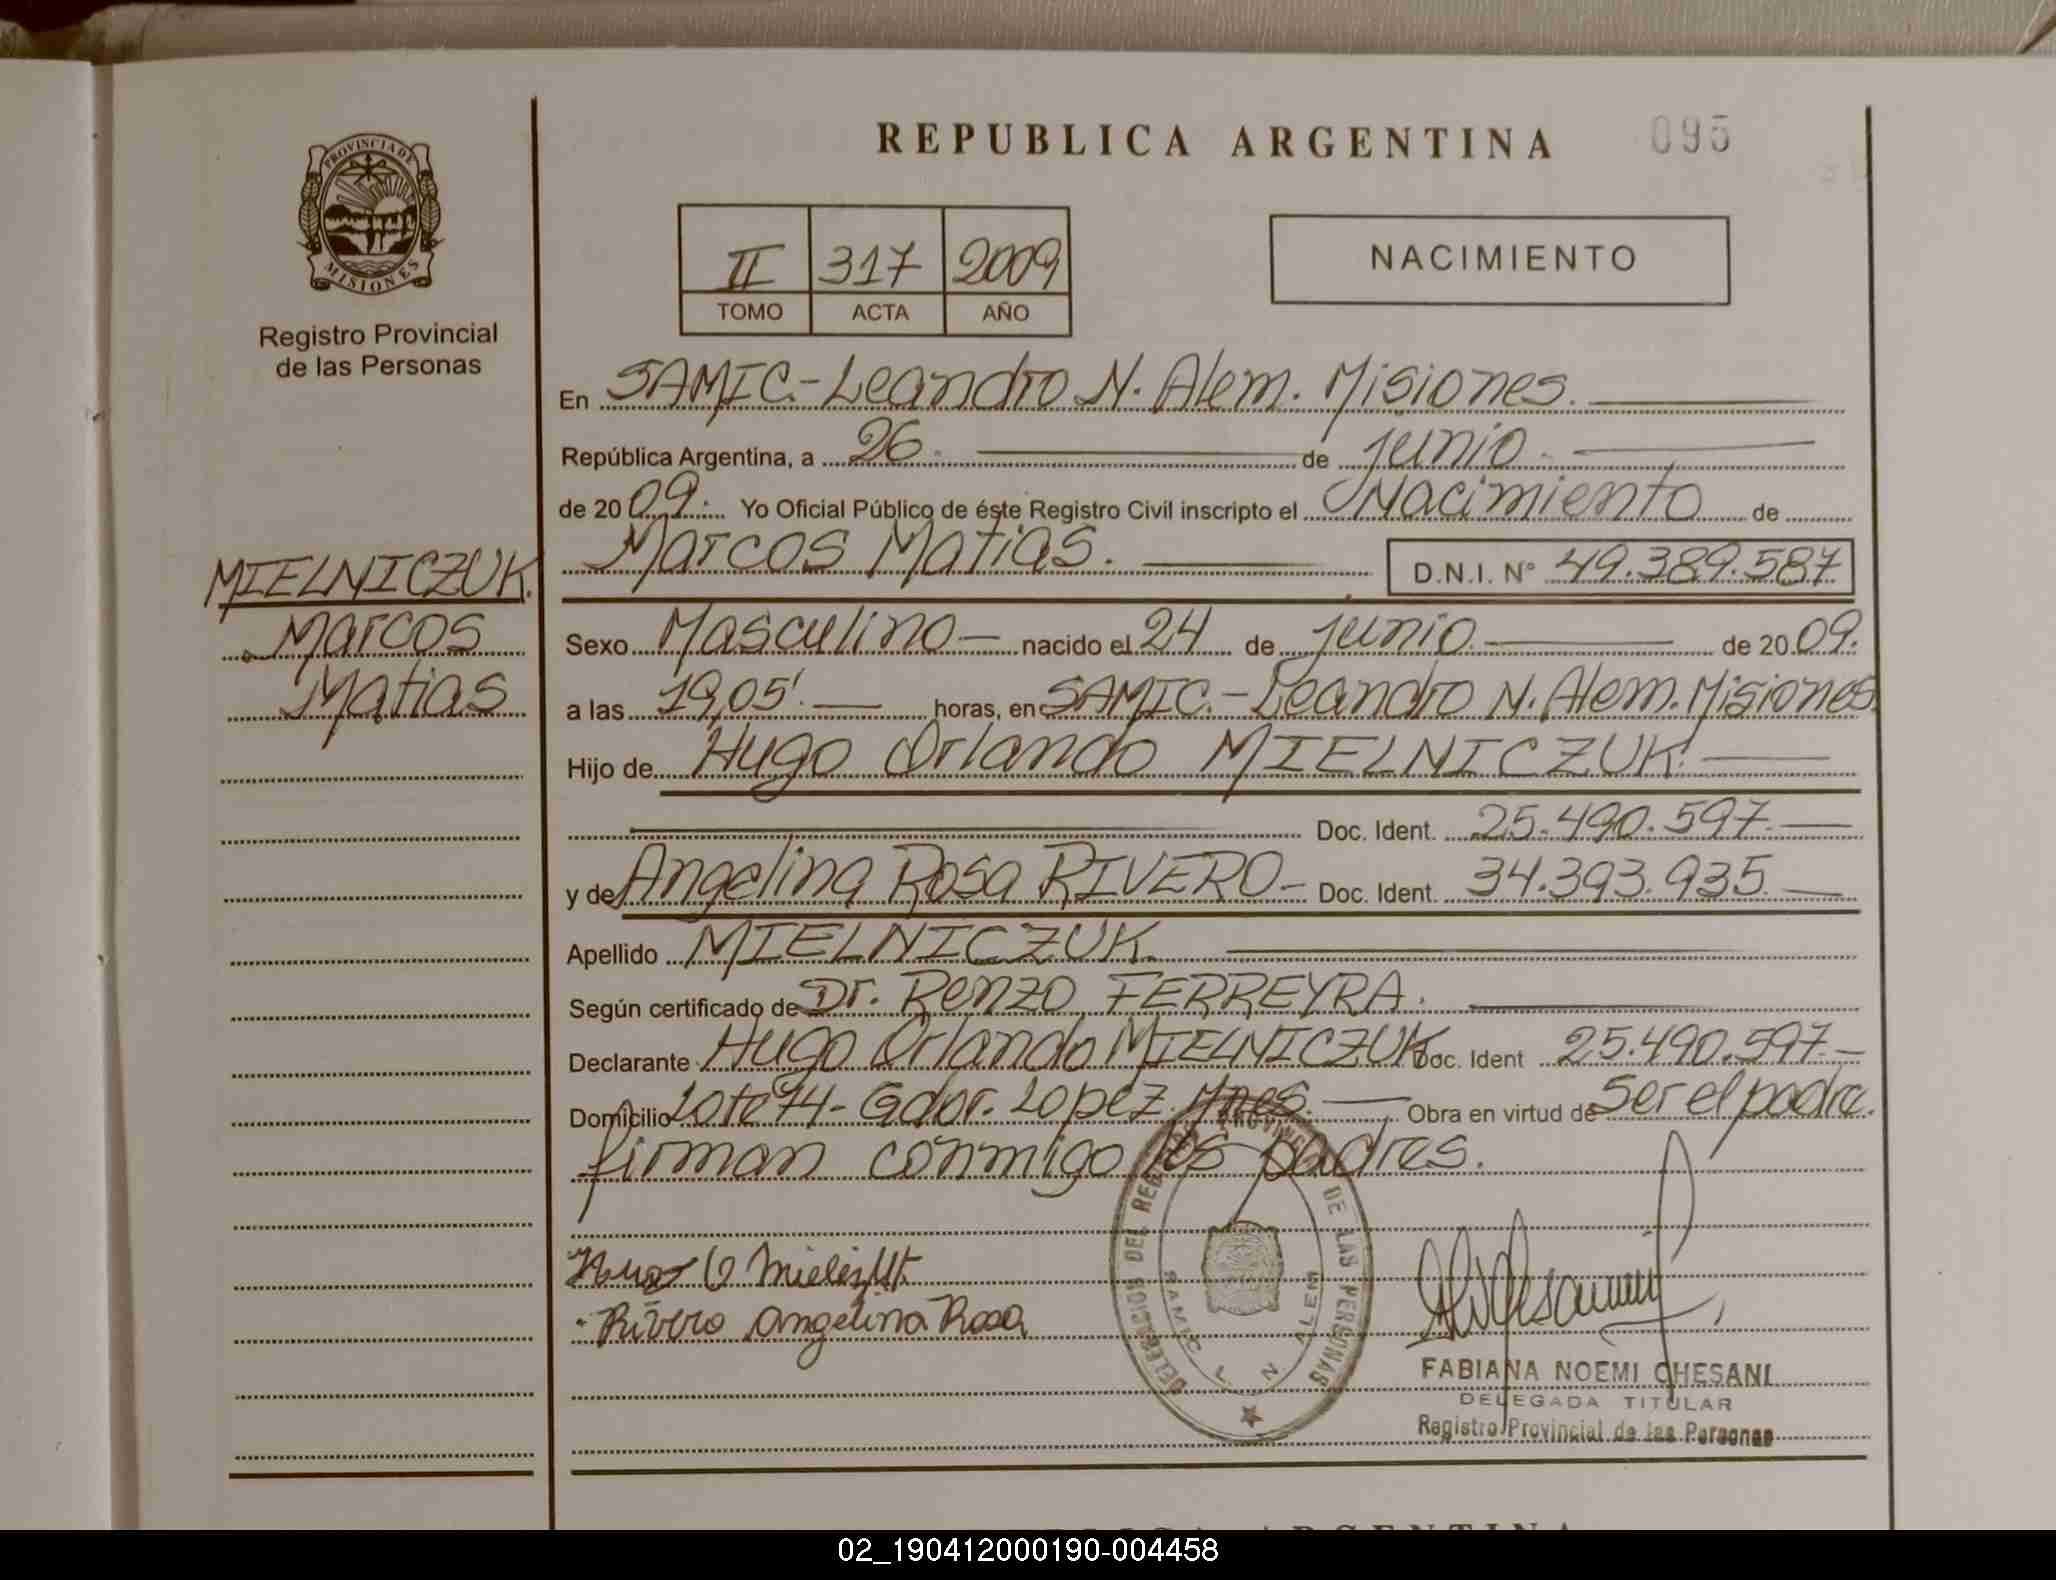 REPUBLICA ARGENTINA 095
PROVINCIA DE
MISIONES
Registro Provincial
de las Personas
II 317 2009
TOMO ACTA AÑO
NACIMIENTO
En SAMIC.-Leandro N. Alem. Misiones.
República Argentina, a 26. de junio.
de 2009. Yo Oficial Público de éste Registro Civil inscripto el Nacimiento de
Marcos Matias. D.N.I. N° 49.389.587
MIELNICZUK.
Marcos
Matias
Sexo Masculino nacido el 24 de junio. de 2009.
a las 19,05'. horas, en SAMIC.-Leandro N. Alem. Misiones.
Hijo de Hugo Orlando MIELNICZUK.
Doc. Ident. 25.490.597.
y de Angelina Rosa RIVERO- Doc. Ident. 34.393.935.
Apellido MIELNICZUK.
Según certificado de Dr. Renzo FERREYRA.
Declarante Hugo Orlando MIELNICZUK Doc. Ident 25.490.597.-
Domicilio Lote 74- Gdor. Lopez. Mnes. Obra en virtud de ser el padre.
firman conmigo los padres.
Rivero Angelina Rosa
DELEGACION DEL REGISTRO PROVINCIAL DE LAS PERSONAS
SAMIC L. N. ALEM
FABIANA NOEMI CHESANI
DELEGADA TITULAR
Registro Provincial de las Personas
02_190412000190-004458